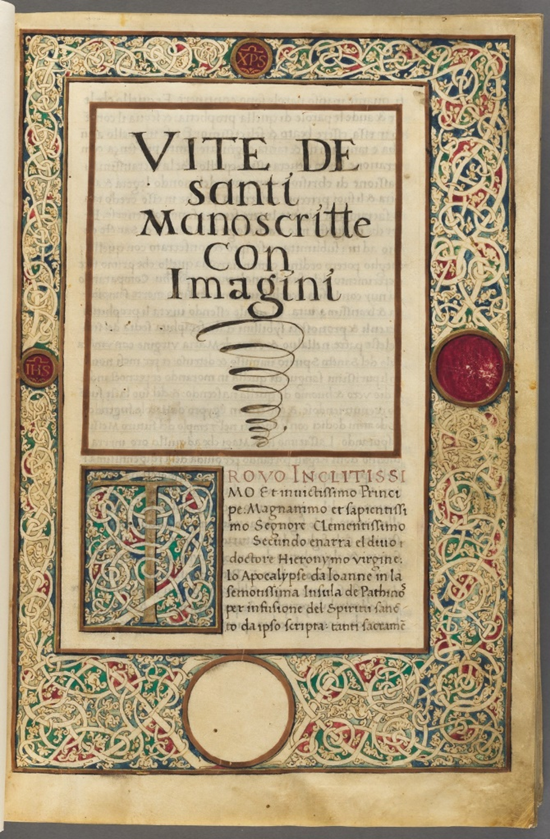 XPS
VITE DE
santi
Manoscritte
con
Imagini
IHS
TROVO INCLITISSI
MO Et inuictissimo Princi
pe: Magnanimo et sapientissi
mo Segnore Clementissimo
Secundo enarra el diuo:
doctore Hieronymo uirgine:
lo Apocalypse da Ioanne in la
semotissima Insula de Pathmos
per infusione del Spiritu sanc
to da ipso scripta: tanti sacramē